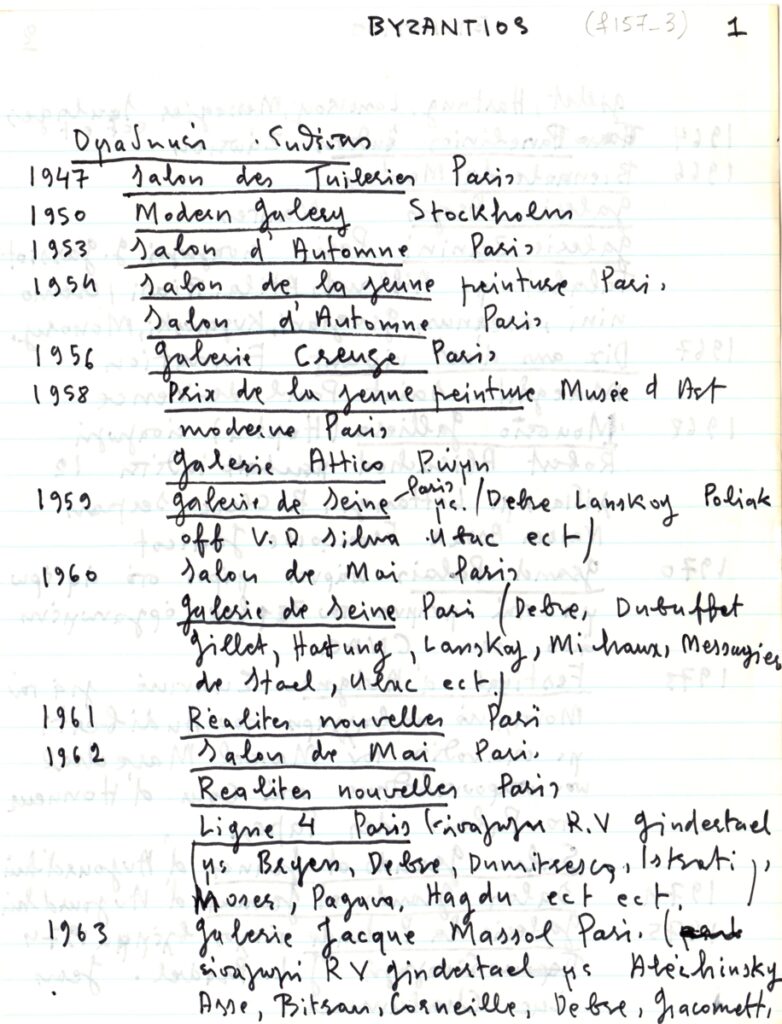 BYZANTIOS (f157_3) 1
Ομαδικές Εκθέσεις
1947 Salon des Tuileries Paris
1950 Modern Galery Stockholm
1953 Salon d'Automne Paris
1954 Salon de la jeune peinture Paris
Salon d'Automne Paris
1956 Galerie Creuze Paris
1958 Prix de la jeune peinture Musée d Art
moderne Paris
Galerie Attico Ρώμη
1959 Galerie de Seine Paris με (Debre Lanskoy Poliak
off V.D Silva Ubac ect)
1960 Salon de Mai Paris
Galerie de Seine Paris (Debre, Dubuffet
Gillet, Hartung, Lanskoy, Michaux, Messagier
de Stael, Ubac ect)
1961 Réalites nouvelles Paris
1962 Salon de Mai Paris
Realites nouvelles Paris
Ligne 4 Paris (εισαγωγη R.V Gindertael
με Bryen, Debre, Dumitresco, Istrati,
Moser, Pagava, Hagdu ect ect.)
1963 Galerie Jacque Massol Paris (
εισαγωγή R V Gindertael με Aléchinsky
Asse, Bitran, Corneille, Debre, Giacometti,